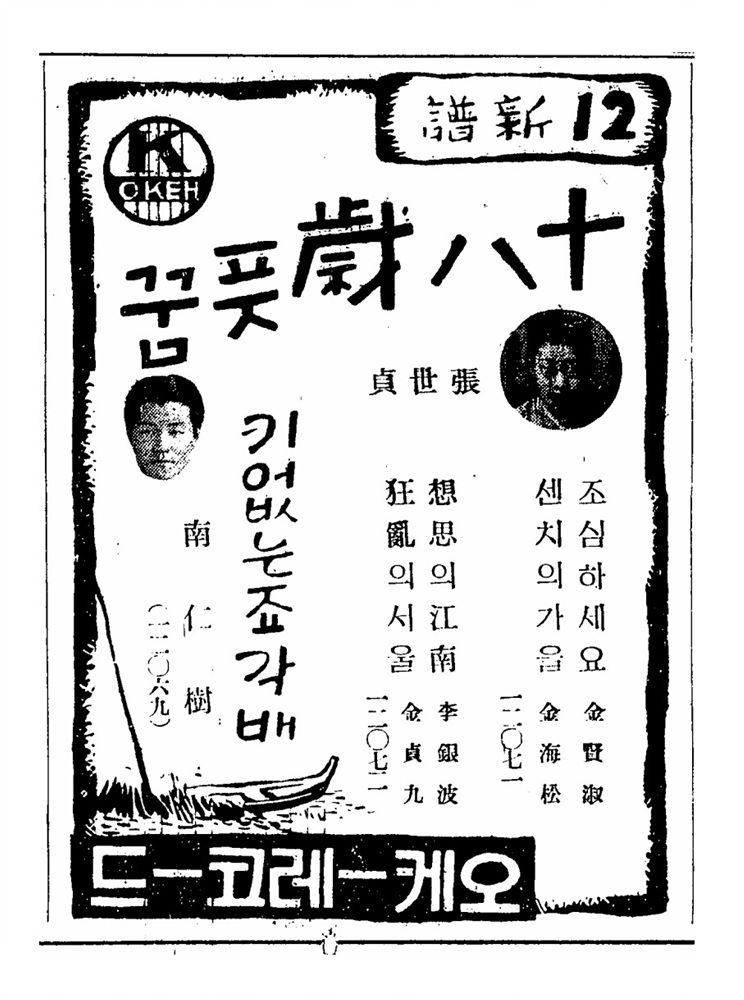 12新譜
K
OKEH
十八歳풋꿈
張世貞
조심하세요 金賢淑
센치의가을 金海松
一二〇七一
想思의江南 李銀波
狂亂의서울 金貞九
一二〇七二
키없는죠각배
南仁樹
(一二〇六九)
오케ー레코ー드